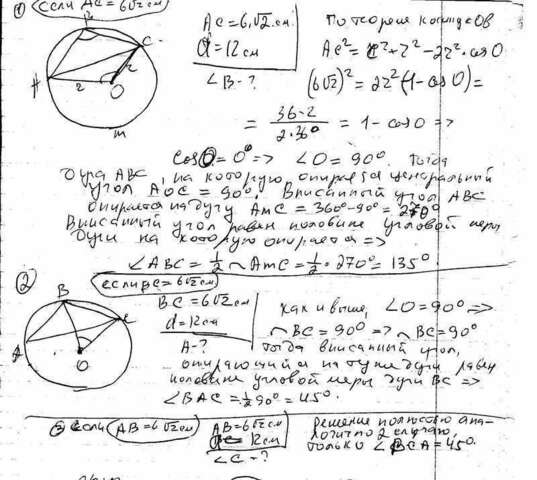 ① Если AC=6√2см
AC=6√2см.
d=12см
∠B-?
По теореме косинусов
AC²=r²+r²-2r²·cosO
(6√2)²=2r²(1-cosO)=
= 36·2 / 2·36 = 1-cosO =>
cosO=0 => ∠O=90°. Тогда
дуга ABC, на которую опирается центральный
угол AOC = 90°. Вписанный угол ABC
опирается на дугу AmC = 360°-90° = 270°
Вписанный угол равен половине угловой меры
дуги на которую опирается =>
∠ABC = 1/2 ◠AmC = 1/2·270° = 135°
B
C
A
r
r
O
m
② если BC=6√2см
BC=6√2см
d=12см
A-?
Как и выше, ∠O=90° =>
◠BC=90° => ◠BC=90°
Тогда вписанный угол,
опирающийся на ту же дугу равен
половине угловой меры дуги BC =>
∠BAC = 1/2 90° = 45°.
B
C
A
O
③ если AB=6√2см
AB=6√2см
12см
∠C-?
Решение полностью ана-
логично 2 случаю,
только ∠BCA=45°.